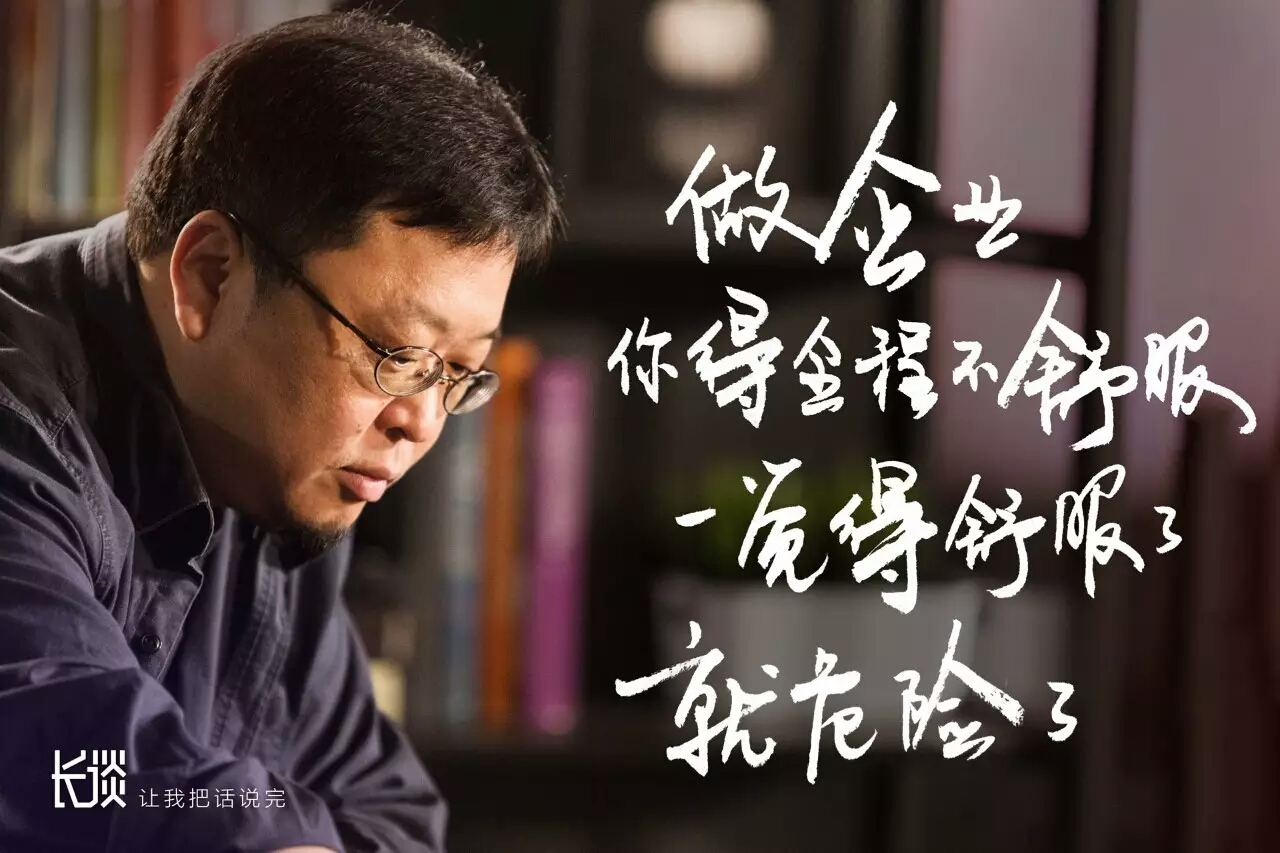 做企业
你得全程不舒服
一觉得舒服了
就危险了
长谈 让我把话说完